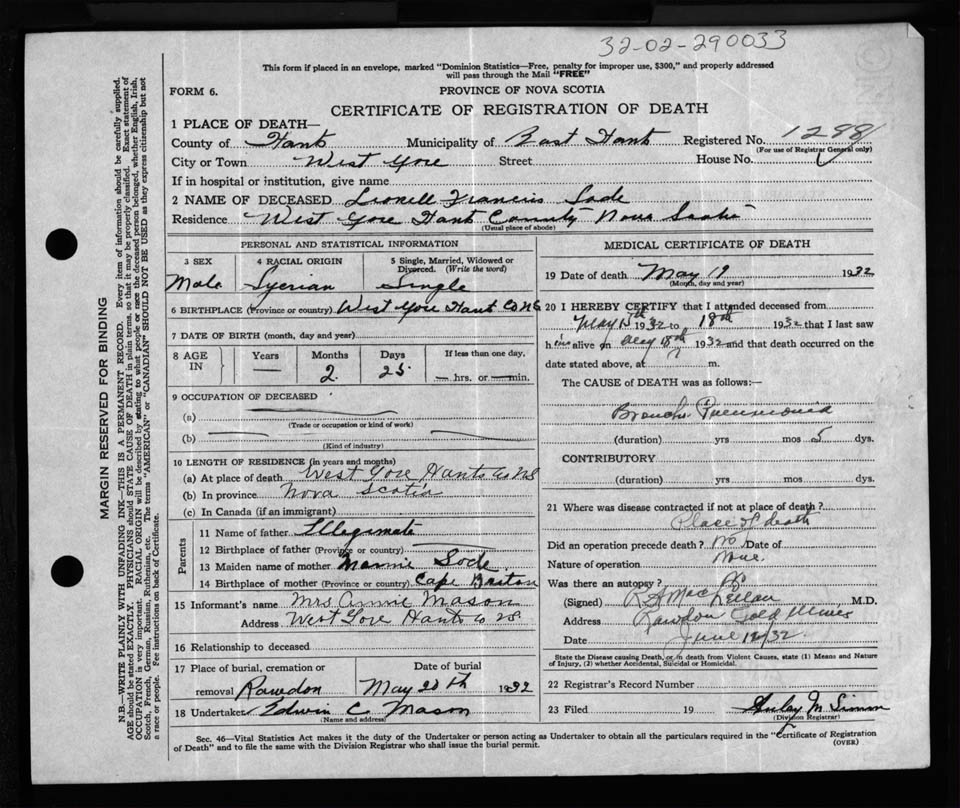 32-02-290033
This form if placed in an envelope, marked "Dominion Statistics—Free, penalty for improper use, $300," and properly addressed
will pass through the Mail "FREE"
FORM 6.
PROVINCE OF NOVA SCOTIA
CERTIFICATE OF REGISTRATION OF DEATH
1 PLACE OF DEATH—
County of Hants Municipality of East Hants Registered No. 1298
(For use of Registrar General only)
City or Town West Gore Street House No.
If in hospital or institution, give name
2 NAME OF DECEASED Lionell Francis Sode
Residence West Gore Hants County Nova Scotia
(Usual place of abode)
PERSONAL AND STATISTICAL INFORMATION
3 SEX 4 RACIAL ORIGIN 5 Single, Married, Widowed or Divorced. (Write the word)
Male Syerian Single
6 BIRTHPLACE (Province or country) West Gore Hants Co NS
7 DATE OF BIRTH (month, day and year)
8 AGE IN Years Months Days If less than one day,
— 2 25 — hrs. or — min.
9 OCCUPATION OF DECEASED
(a)
(Trade or occupation or kind of work)
(b)
(Kind of industry)
10 LENGTH OF RESIDENCE (in years and months)
(a) At place of death West Gore Hants Co NS
(b) In province Nova Scotia
(c) In Canada (if an immigrant)
Parents
11 Name of father Illegimate
12 Birthplace of father (Province or country)
13 Maiden name of mother Sode
14 Birthplace of mother (Province or country) Cape Briton
15 Informant's name Mrs Annie Mason
Address West Gore Hants Co NS
16 Relationship to deceased
17 Place of burial, cremation or removal Rawdon
Date of burial May 20th 1932
18 Undertaker Edwin C Mason
(Name and address)
MEDICAL CERTIFICATE OF DEATH
19 Date of death May 19 1932
(Month, day and year)
20 I HEREBY CERTIFY that I attended deceased from
May 15th 1932 to 18th 1932 that I last saw
him alive on May 18th 1932 and that death occurred on the
date stated above, at ? m.
The CAUSE OF DEATH was as follows:—
Broncho Pneumonia
(duration) yrs mos 5 dys.
CONTRIBUTORY
(duration) yrs mos dys.
21 Where was disease contracted if not at place of death?
Place of death
Did an operation precede death? No Date of
Nature of operation None.
Was there an autopsy? No
(Signed) R A MacLellan M.D.
Address Rawdon Gold Mines
Date June 12/32
State the Disease causing Death, or, in death from Violent Causes, state (1) Means and Nature
of Injury, (2) whether Accidental, Suicidal or Homicidal.
22 Registrar's Record Number
23 Filed 19
(Division Registrar)
Sec. 46—Vital Statistics Act makes it the duty of the Undertaker or person acting as Undertaker to obtain all the particulars required in the "Certificate of Registration
of Death" and to file the same with the Division Registrar who shall issue the burial permit.
(OVER)
MARGIN RESERVED FOR BINDING
N.B.—WRITE PLAINLY WITH UNFADING INK—THIS IS A PERMANENT RECORD. Every item of information should be carefully supplied.
AGE should be stated EXACTLY. PHYSICIANS should STATE CAUSE OF DEATH in plain terms, so that it may be properly classified. Exact statement of
OCCUPATION is very important. RACIAL ORIGIN will be described by stating to what people or race the deceased person belonged, whether English, Irish,
Scotch, French, German, Russian, Ruthenian, etc. The terms "AMERICAN" or "CANADIAN" SHOULD NOT BE USED as they express citizenship but not
a race or people. Fee instructions on back of Certificate.